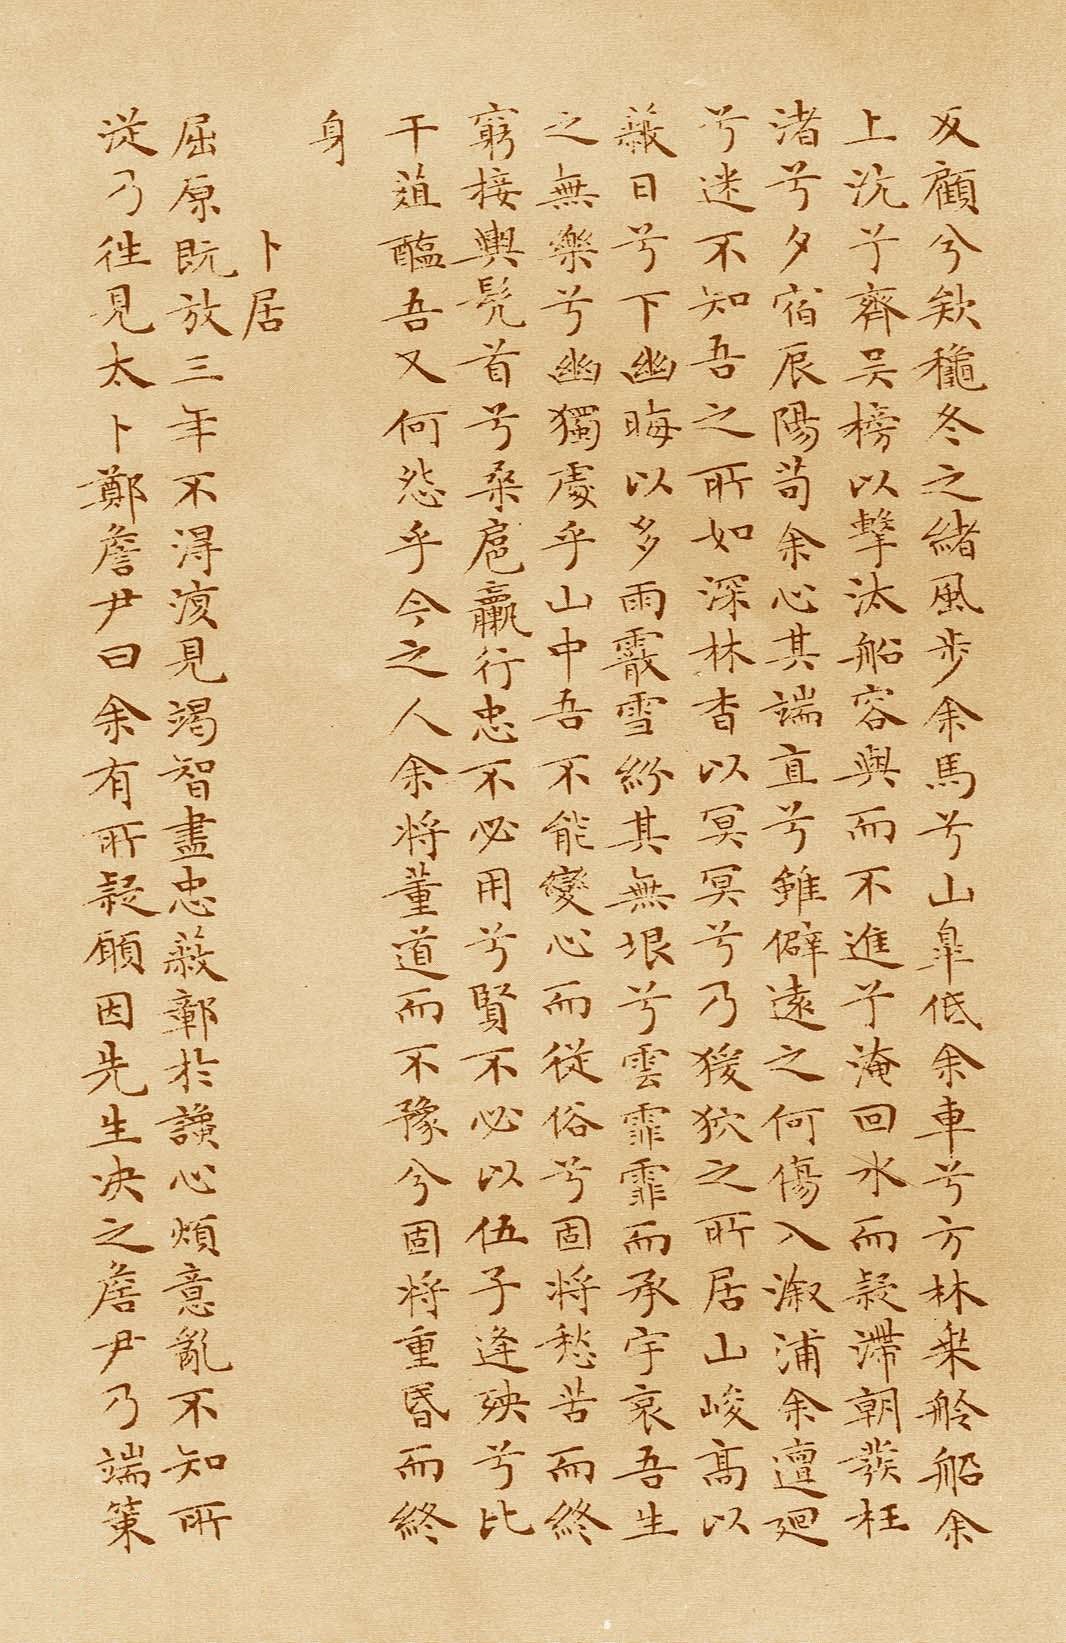 反顧兮欸穐冬之緒風步余馬兮山臯低余車兮方林乗舲船余
上沅兮齊吴榜以擊汰船容與而不進兮淹回水而疑滯朝發枉
渚兮夕宿辰陽茍余心其端直兮雖僻遠之何傷入溆浦余邅廻
兮迷不知吾之所如深林杳以冥冥兮乃猨狖之所居山峻髙以
蔽日兮下幽晦以多雨霰雪紛其無垠兮雲霏霏而承宇哀吾生
之無樂兮幽獨處乎山中吾不能變心而從俗兮固將愁苦而終
窮接輿髠首兮桒扈臝行忠不必用兮賢不必以伍子逢殃兮比
干葅醢吾又何怨乎今之人余將董道而不豫兮固將重昏而終
身
卜居
屈原既放三年不得復見竭智盡忠蔽鄣於讒心煩意亂不知所
從乃徃見太卜鄭詹尹曰余有所疑願因先生决之詹尹乃端策